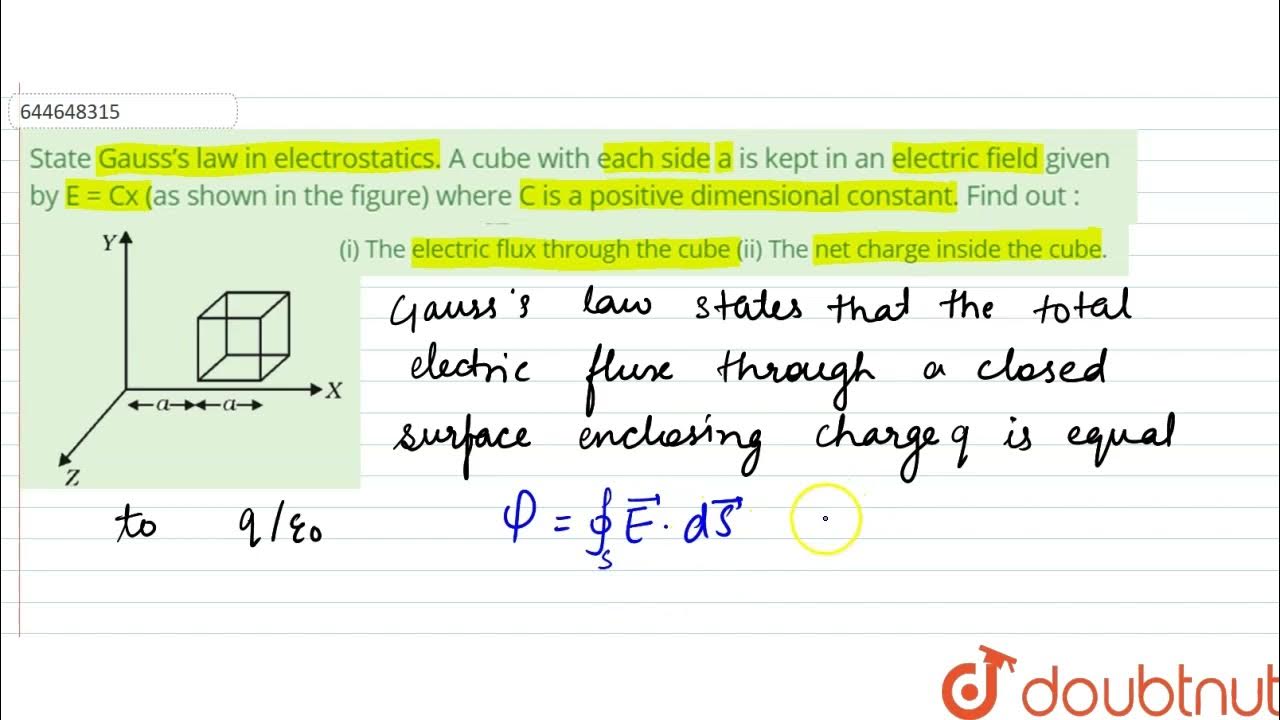 644648315
State Gauss's law in electrostatics. A cube with each side a is kept in an electric field given
by E = Cx (as shown in the figure) where C is a positive dimensional constant. Find out :
(i) The electric flux through the cube (ii) The net charge inside the cube.
Y
X
a
a
Z
Gauss's law states that the total
electric flux through a closed
surface enclosing charge q is equal
to q/ε₀
φ = ∮ₛ E⃗ · dS⃗
doubtnut